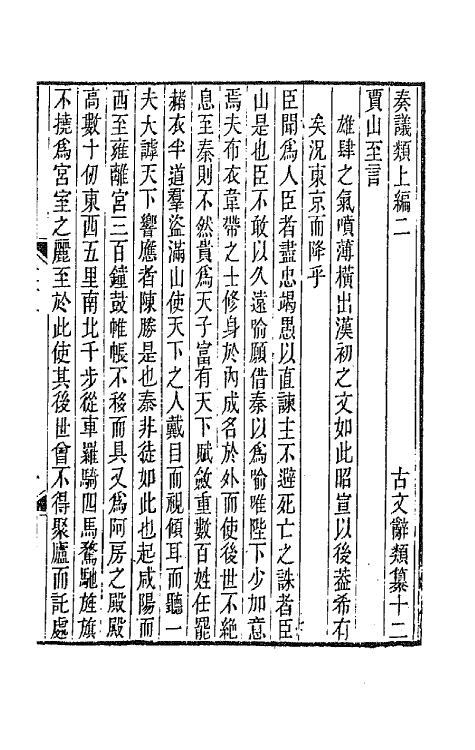 奏議類上編二　古文辭類纂十二
賈山至言
雄肆之氣噴薄橫出漢初之文如此昭宣以後葢希有
矣況東京而降乎
臣聞爲人臣者盡忠竭愚以直諫主不避死亡之誅者臣
山是也臣不敢以久遠喻願借秦以爲喻唯陛下少加意
焉夫布衣韋帶之士修身於內成名於外而使後世不絕
息至秦則不然貴爲天子富有天下賦斂重數百姓任罷
赭衣半道羣盜滿山使天下之人戴目而視傾耳而聽一
夫大謼天下響應者陳勝是也秦非徒如此也起咸陽而
西至雍離宮三百鐘鼓帷帳不移而具又爲阿房之殿殿
高數十仞東西五里南北千步從車羅騎四馬騖馳旌旗
不撓爲宮室之麗至於此使其後世曾不得聚廬而託處